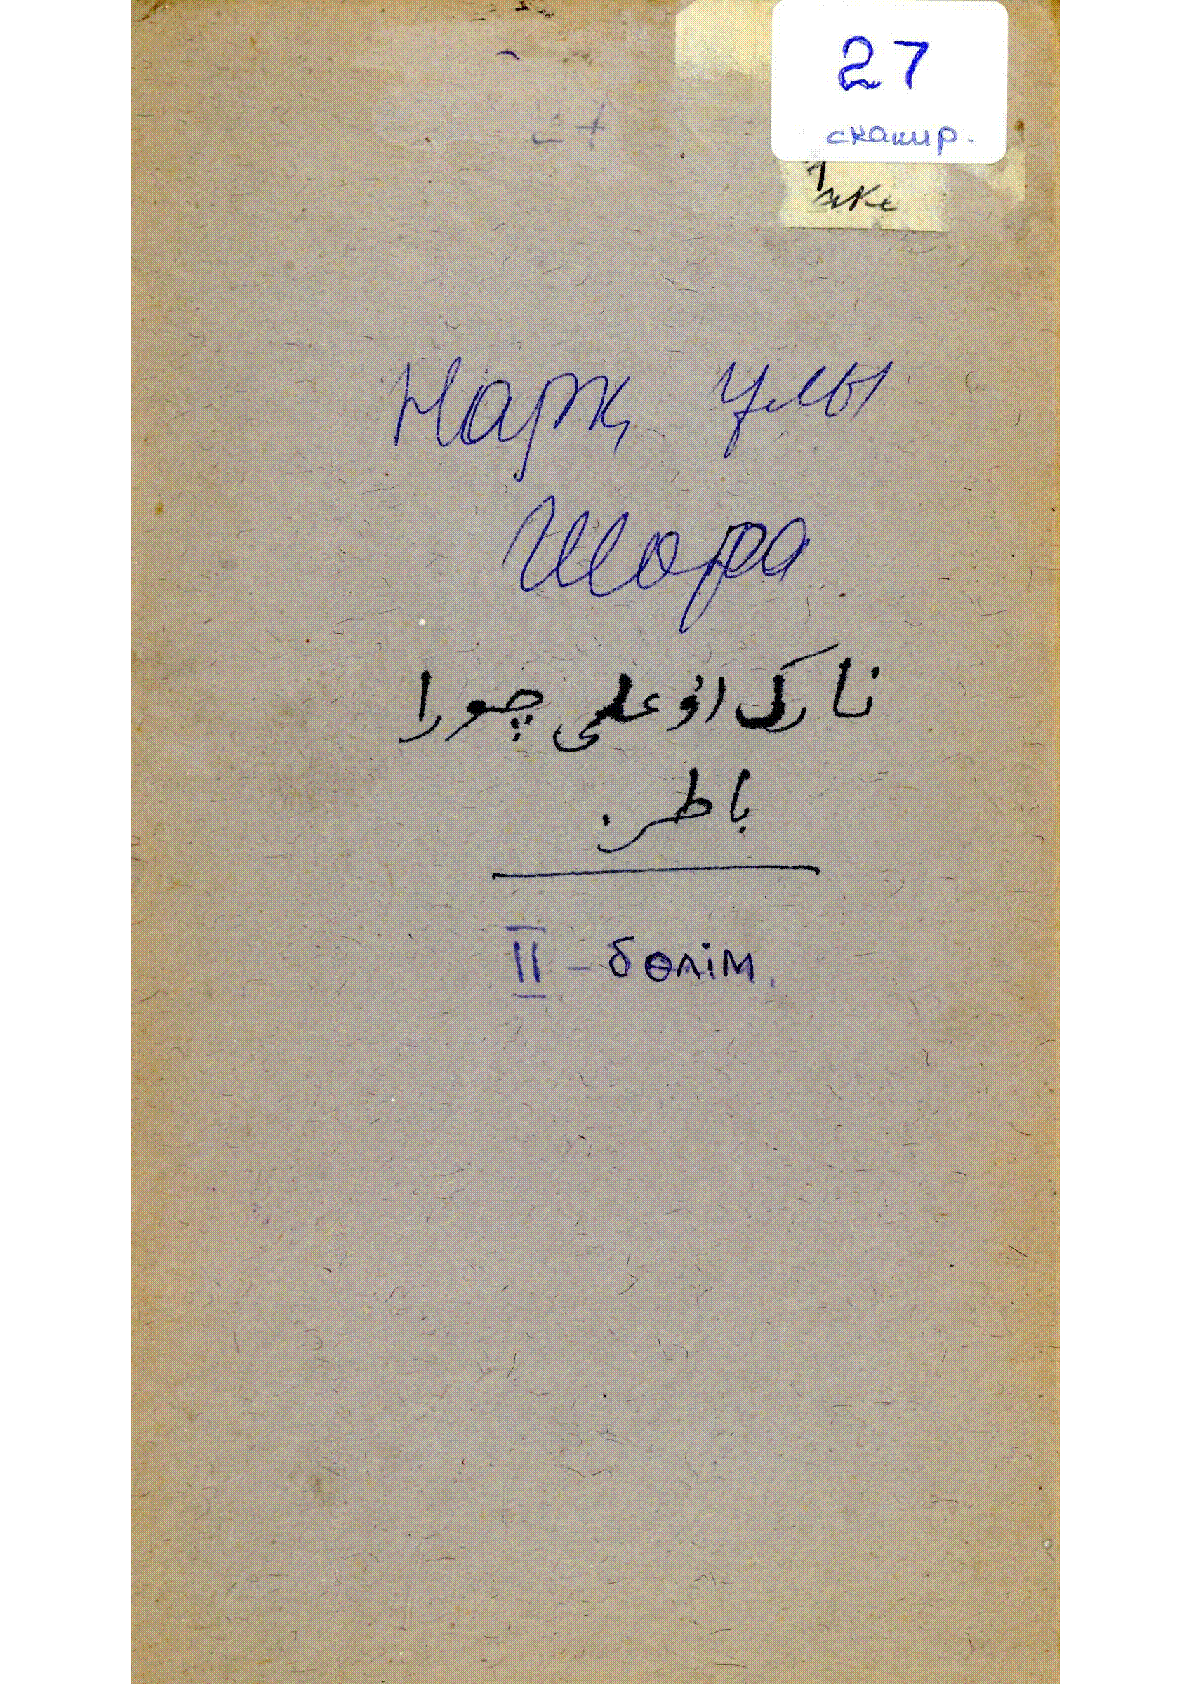 27
сканир.
Нарқ ұлы
Шора
نارك اوُغلى چورا
باطر.
II - бөлім.